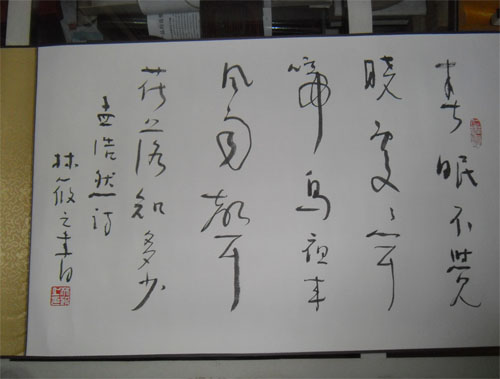 春眠不觉
晓处々闻
啼鸟夜来
风雨声
花落知多少
孟浩然诗
林筱之书